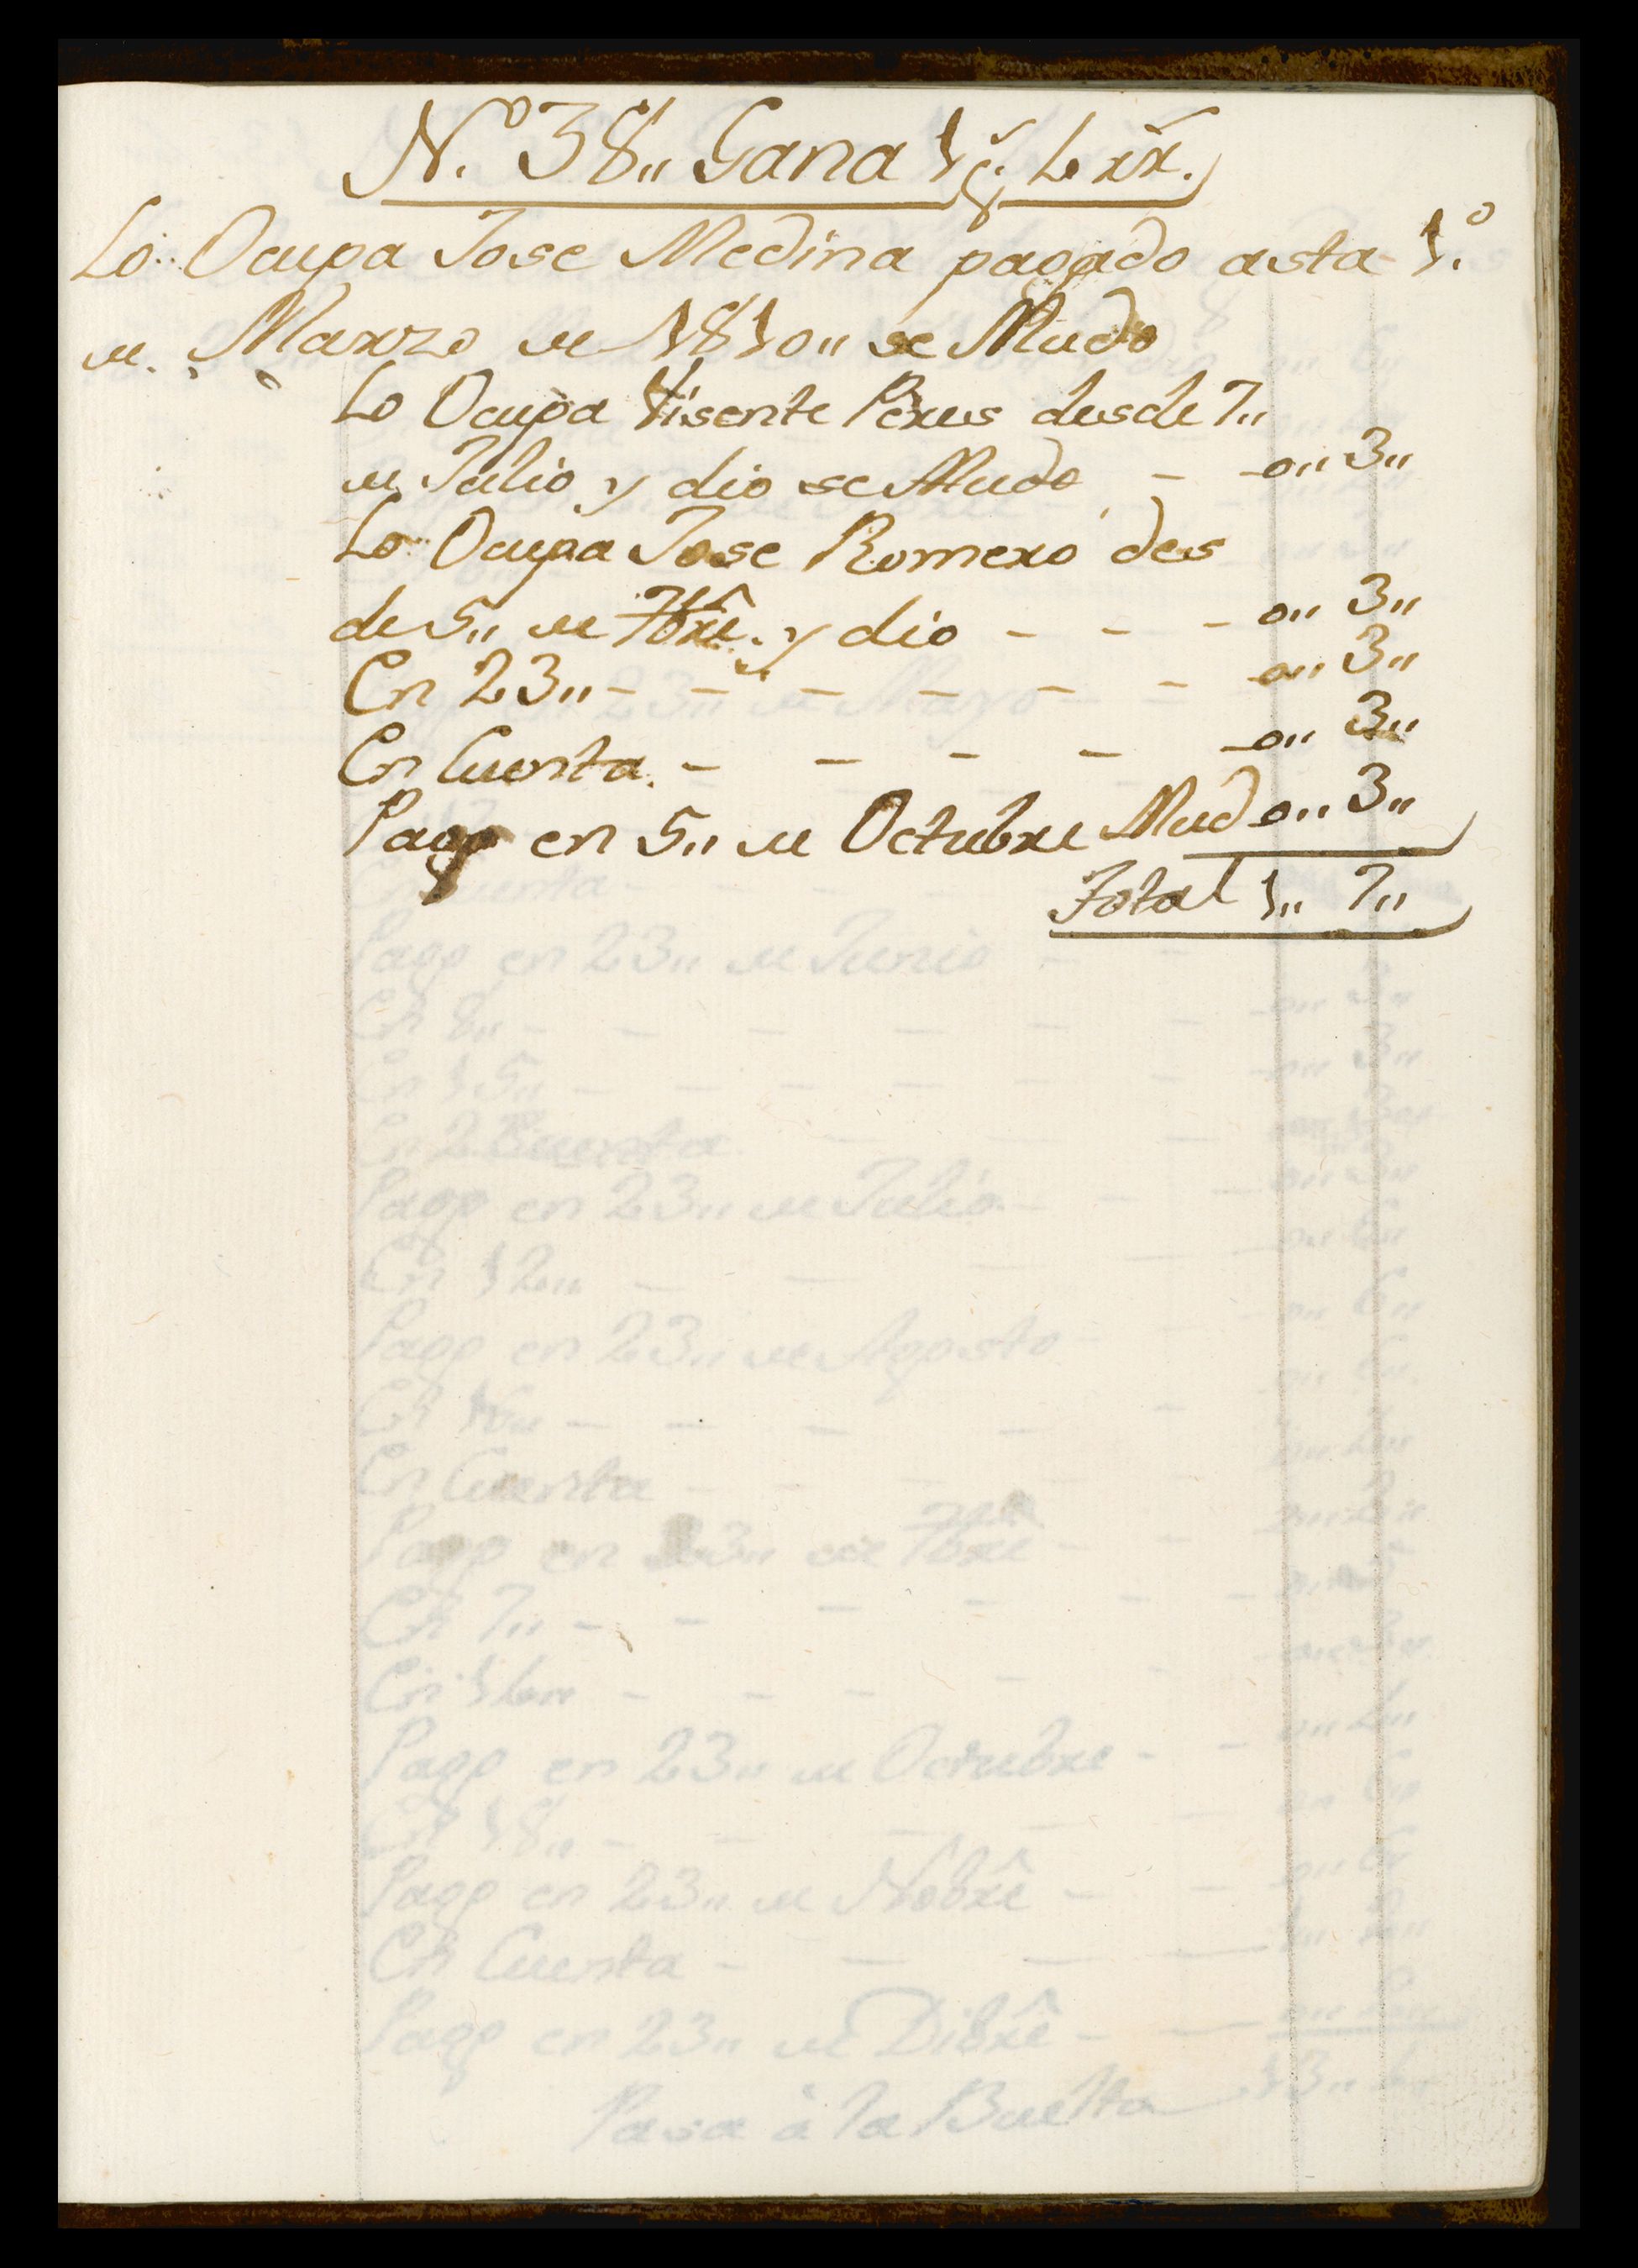 N.º 38,, Gana 1 p.s 4 rr.
Lo Ocupa Jose Medina pagado asta 1.º
de Marzo de 1810,, se Mudo
Lo Ocupa Visente Peres desde 7,,
de Julio y dio se Mudo - -0,, 3,,
Lo Ocupa Jose Romero des
de 5,, de 7bre. y dio - - - 0,, 3,,
En 23,, - - - - - - 0,, 3,,
En Cuenta. - - - - -0,, 3,,
Pago en 5,, de Octubre Mudo 0,, 3,,
Total 1,, 7,,